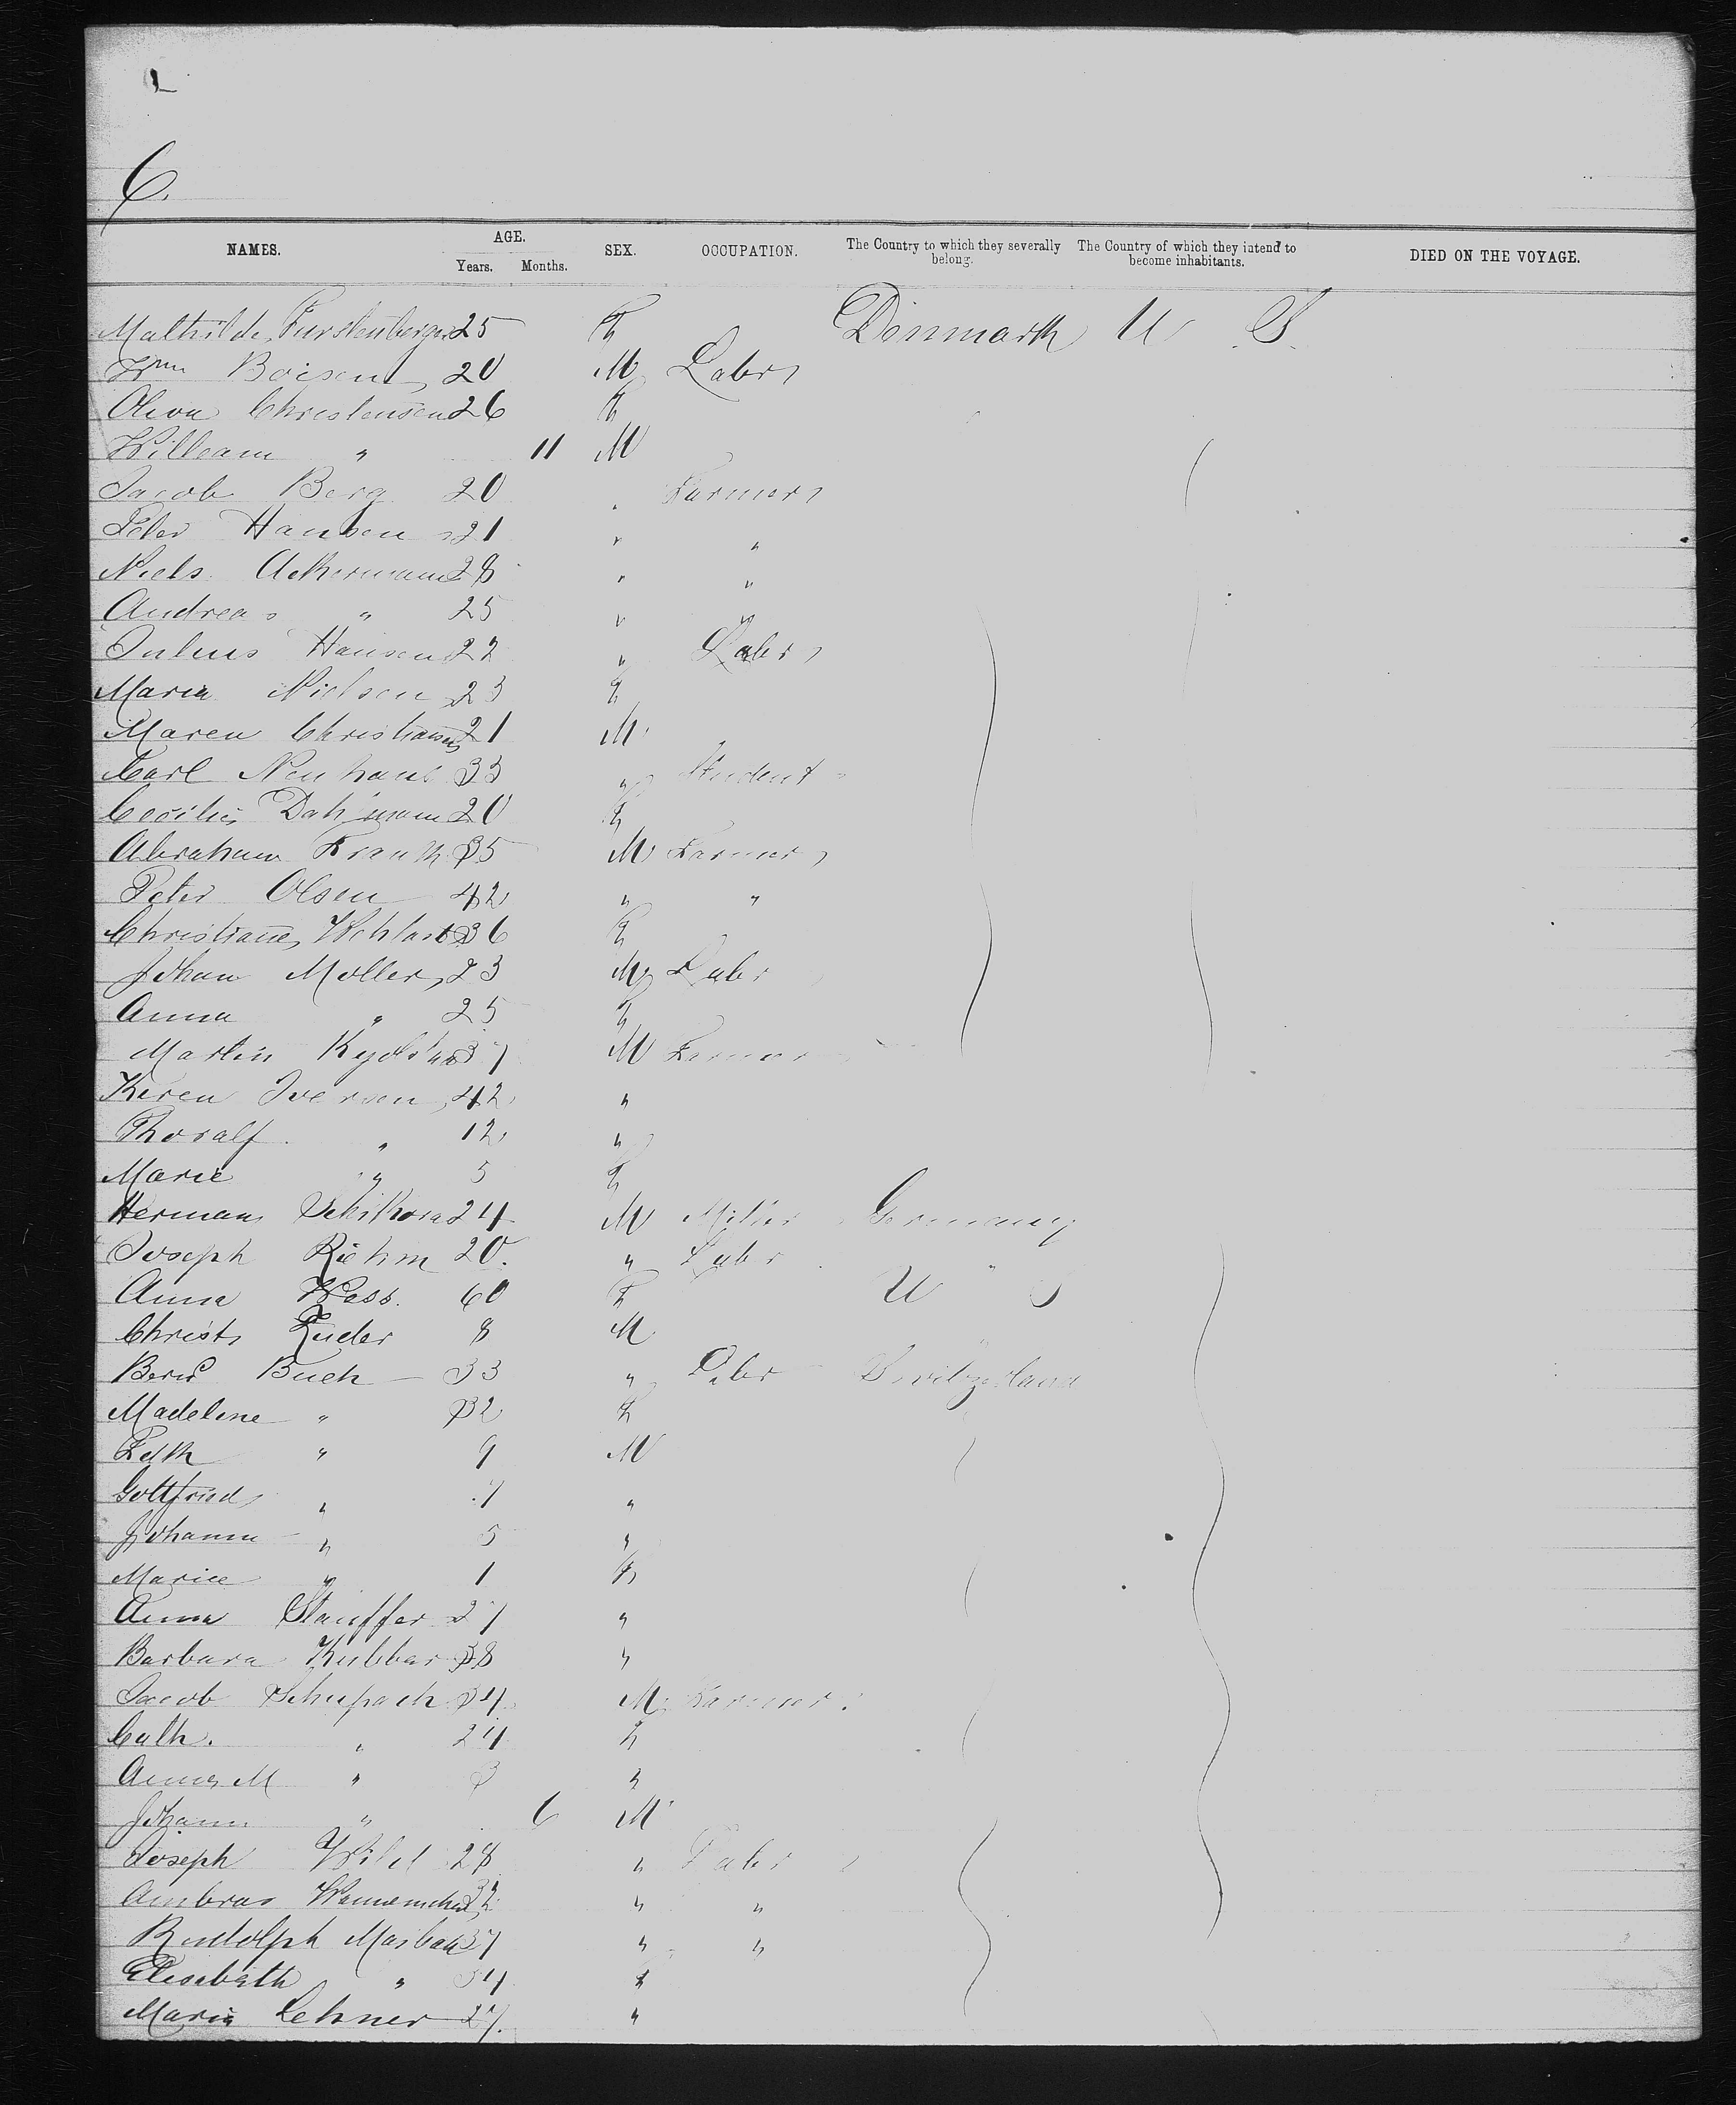 6.
NAMES. AGE. SEX. OCCUPATION. The Country to which they severally belong. The Country of which they intend to become inhabitants. DIED ON THE VOYAGE.
Years. Months.
Mathilde Furstenberger 25 F Denmark U S
Wm Boisen 20 M Labr
Oliva Christensen 26 F
William " 11 M
Jacob Berg 20 " Farmer
Peter Hansen 21 " "
Niels Ackermann 28 " "
Andreas " 25 " "
Julius Hansen 22 " Labr
Maria Nielsen 23 F
Maren Christiansen 21 M
Carl Neuhaus 33 " Student
Cecilie Dahlmann 20 F
Abraham Frank 35 M Farmer
Peter Olsen 42 " "
Christiane 36 F
Johan Moller 23 M Labr
Anna " 25 F
Martin 37 M Farmer
Keren Iversen 42 "
Thoralf " 12 "
Marie " 5 F
Herman Schikora 24 M Miller Germany
Joseph Riehm 20 " Labr "
Anna Wass 60 F U S
Christ Zuder 8 M "
Bend Buch 33 " Labr Switzerland
Madeline " 32 F
" 9 M
Gottfried " 7 "
Johann " 5 "
Marie " 1 F
Anna Stauffer 27 "
Barbara Kubbar 38 "
Jacob Schupach 34 M Farmer
Cath. " 24 F
Anna M " 3 "
Johann " 6 M
Joseph Wild 28 " Labr
Ambros 32 " "
Rudolph Marbach 37 " "
Elisabeth " 34 F
Maria Lehner 27 "